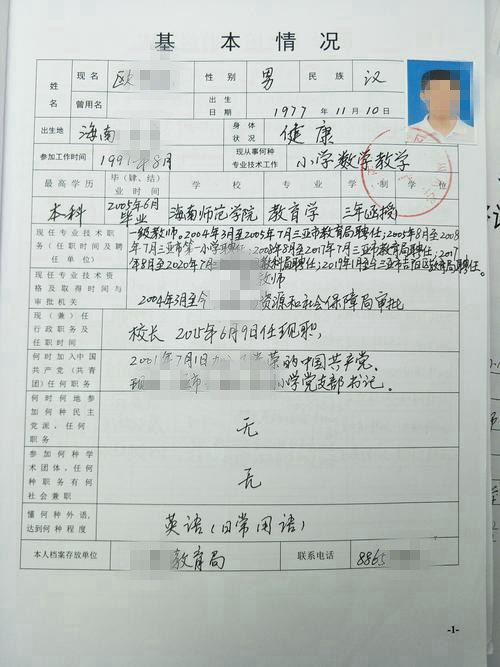 基本情况
姓名 现名 欧 性别 男 民族 汉
曾用名 出生日期 1977年11月10日
出生地 海南 身体状况 健康
参加工作时间 199 年8月 现从事何种专业技术工作 小学数学教学
最高学历 毕(肄、结)业时间 学校 专业 学制 学位
本科 2005年6月毕业 海南师范学院 教育学 三年函授
现任专业技术职务(任职时间及聘任单位) 一级教师。2004年3月至2005年7月三亚市教育局聘任;2005年8月至2008
年7月三亚市第一小学聘任;2008年8月至2017年7月三亚市教育局聘任;2017
年8月至2020年7月 教科局聘任;2019年1月至今三亚市吉阳区教育局聘任。
现任专业技术资格及取得时间与审批机关 教师
2004年3月至今 资源和社会保障局审批
现(兼)任行政职务及任职时间 校长 2015年6月9日任现职,
何时加入中国共产党(共青团)任何职务 2001年7月1日加 荣的中国共产党.
现 市 小学党支部书记.
何时何地参加何种民主党派,任何职务 无
参加何种学术团体,任何种职务有何社会兼职 无
懂何种外语,达到何种程度 英语(日常用语)
本人档案存放单位 教育局 联系电话 8865
-1-